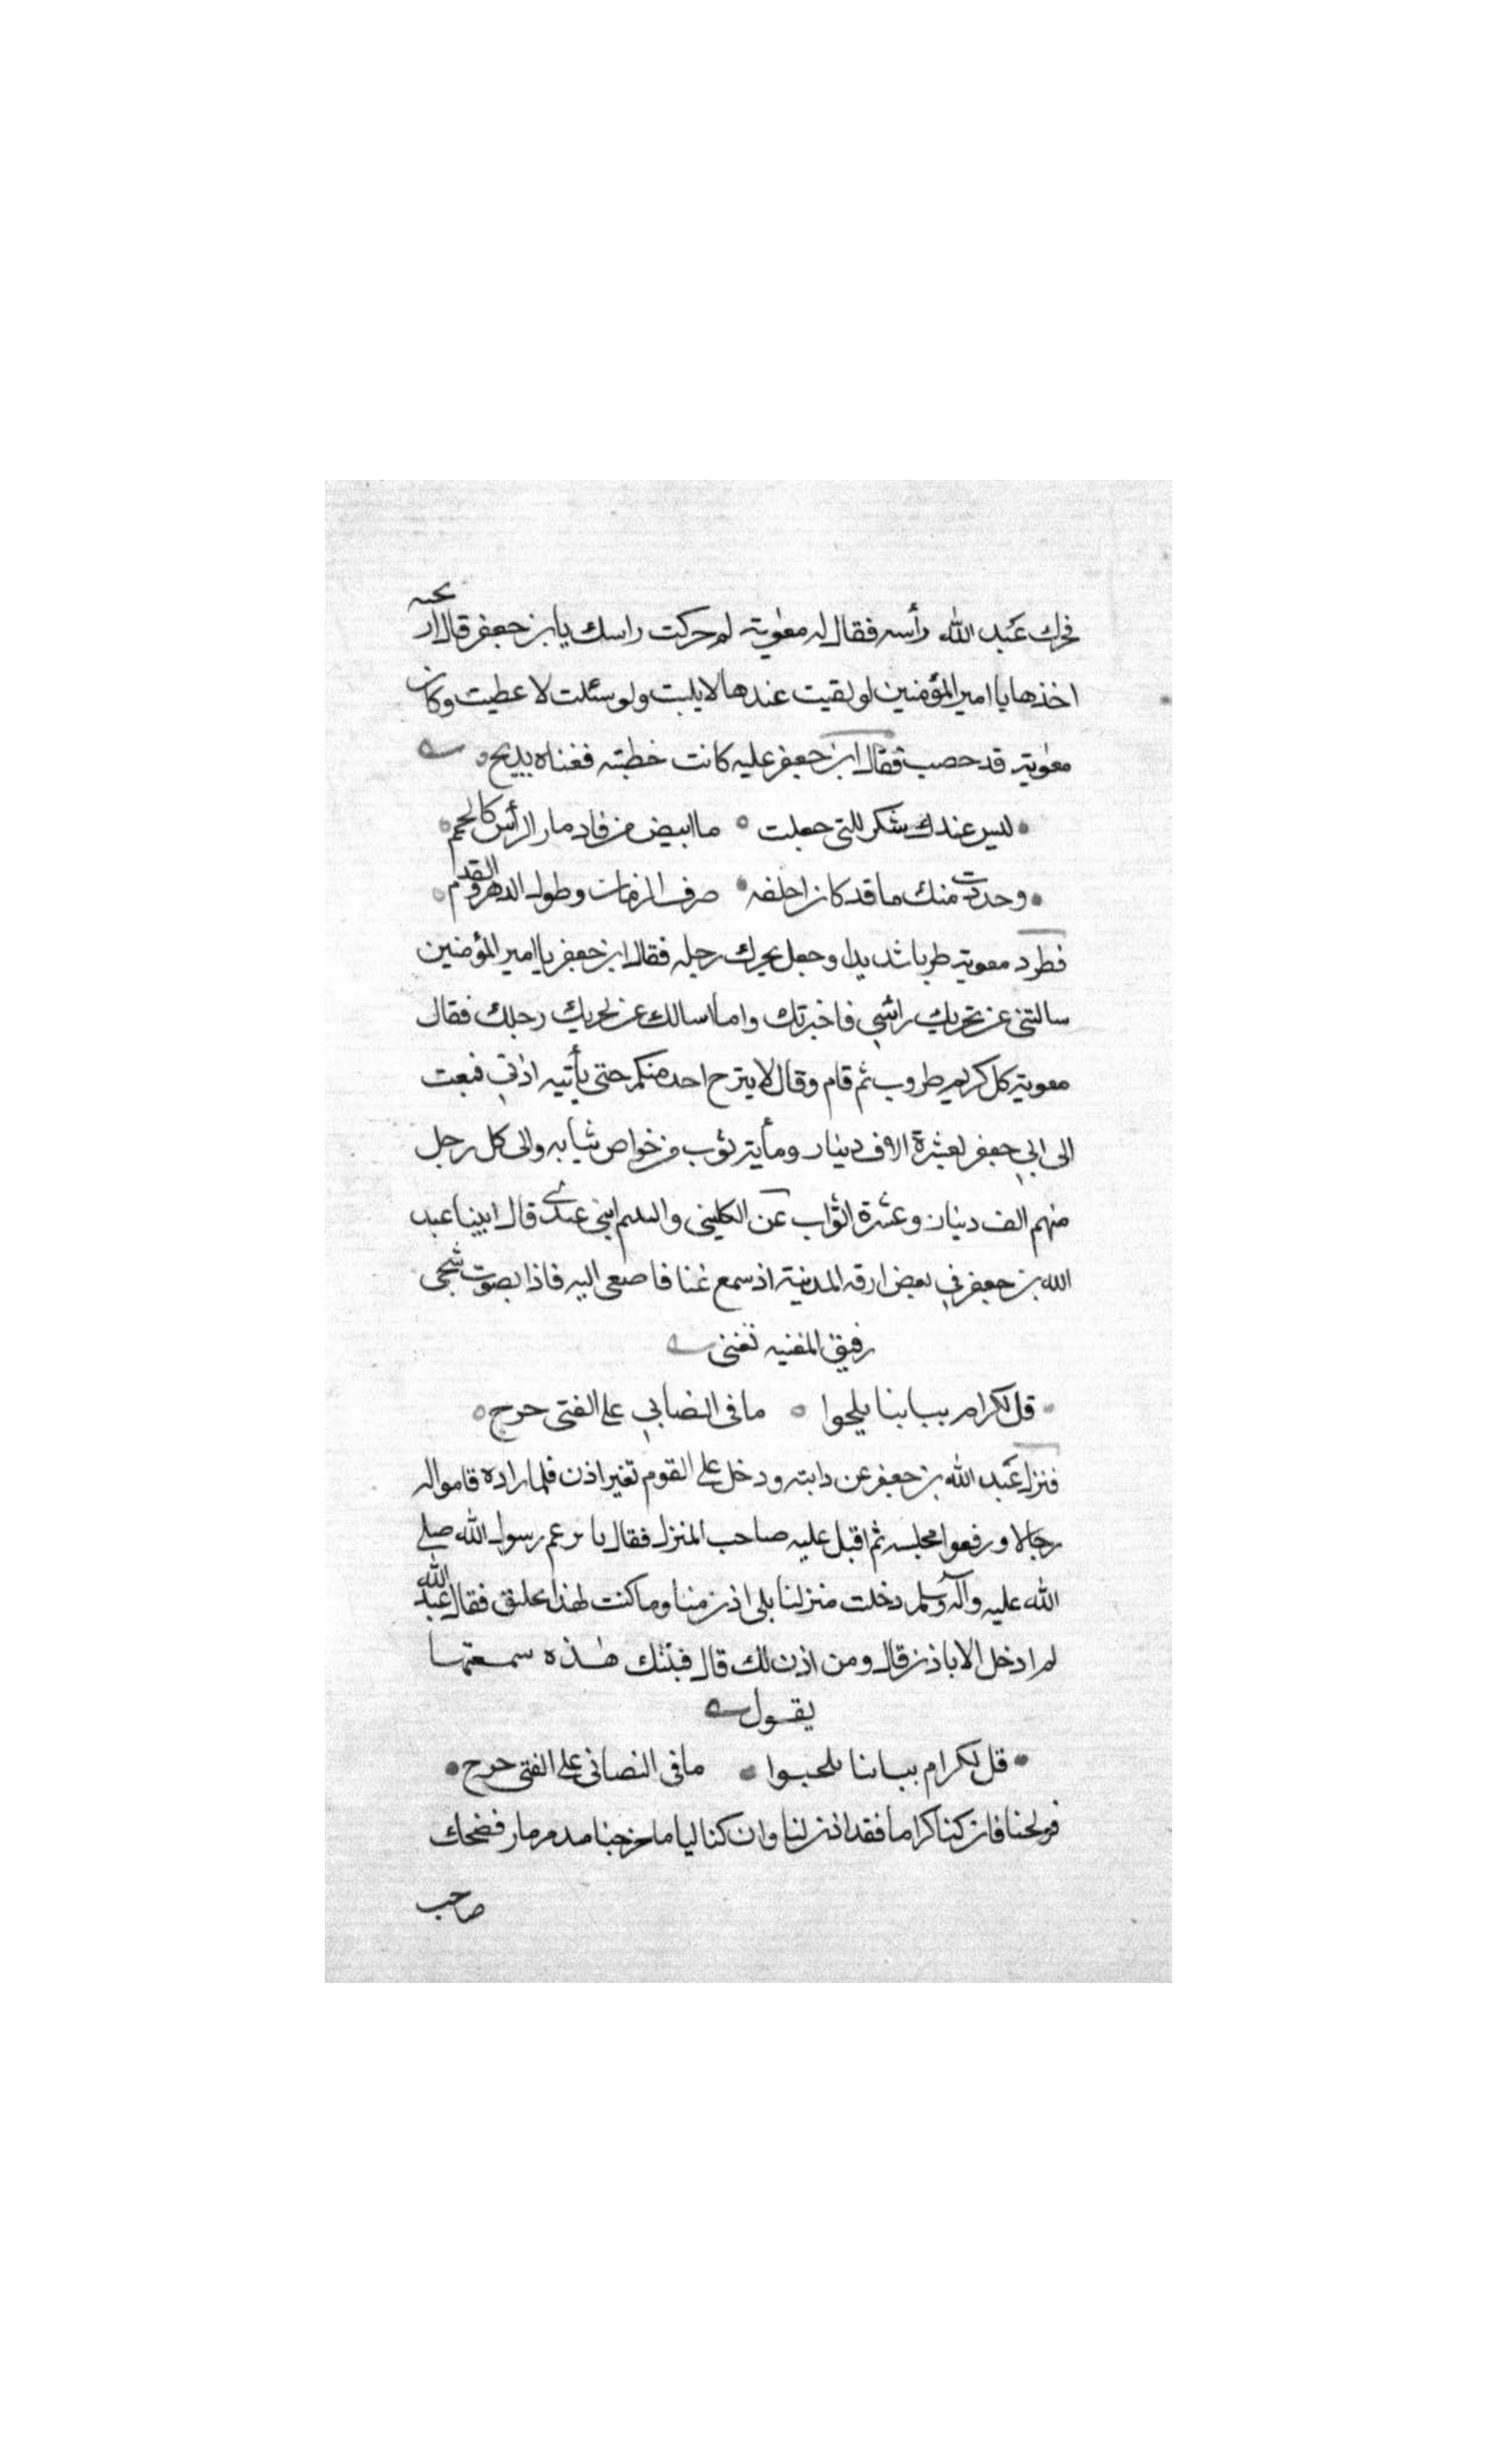 فحرك عبد الله رأسه فقال له معوية لم حركت راسك يا بن جعفر قال اريحيه
اخذها يا امير المؤمنين لو لقيت عندها لا بليت ولو سئلت لاعطيت وكان
معوية قد خصب فقال ابن جعفر عليه كانت خطبته فغناه بديح
ليس عندك شكر للتى جعلت ما ابيض من قادمار الرأس كالحمم
وحددت منك ما قد كان احلفه صرف الزمان وطول الدهر والقدم
فطرد معوية طربا شديدا وجعل يحرك رجله فقال ابن جعفر يا امير المؤمنين
سالتنى عن تحريك راسى فاخبرتك واما اسالك عن تحريك رجلك فقال
معوية كل كريم طروب ثم قام وقال لا يبرح احد منكم حتى يأتيه اذنى فبعث
الى ابى جعفر لعشرة الاف دينار ومأية ثوب من خواص ثيابه والى كل رجل
منهم الف دينار وعشرة اثواب عن الكلينى والهيثم ابنى عدى قال ابينا عبد
الله بن جعفر فى بعض ازقه المدينة اذ سمع غنا فاصغى اليه فاذا بصوت شجى
رقيق المغنيه تغنى
قل لكرام ببابنا يلجوا ما فى التصابى على الفتى حرج
فنزل عبد الله بن جعفر عن دابته ودخل على القوم تغير اذن فلما راده قاموا له
رجالا ورفعوا مجلسه ثم اقبل عليه صاحب المنزل فقال يا بن عم رسول الله صلى
الله عليه وآله وسلم دخلت منزلنا بلى اذن منا وما كنت لهذا بخليق فقال عبد الله
لم ادخل الا باذن قال ومن اذن لك قال قينتك هذه سمعتها
يقول
قل لكرام ببابنا يلجبوا ما فى النصابى على الفتى حرج
فولجنا فان كنا كراما فقد اذن لنا وان كنا لياما خرجنا مدمومار فضحك
صاحب